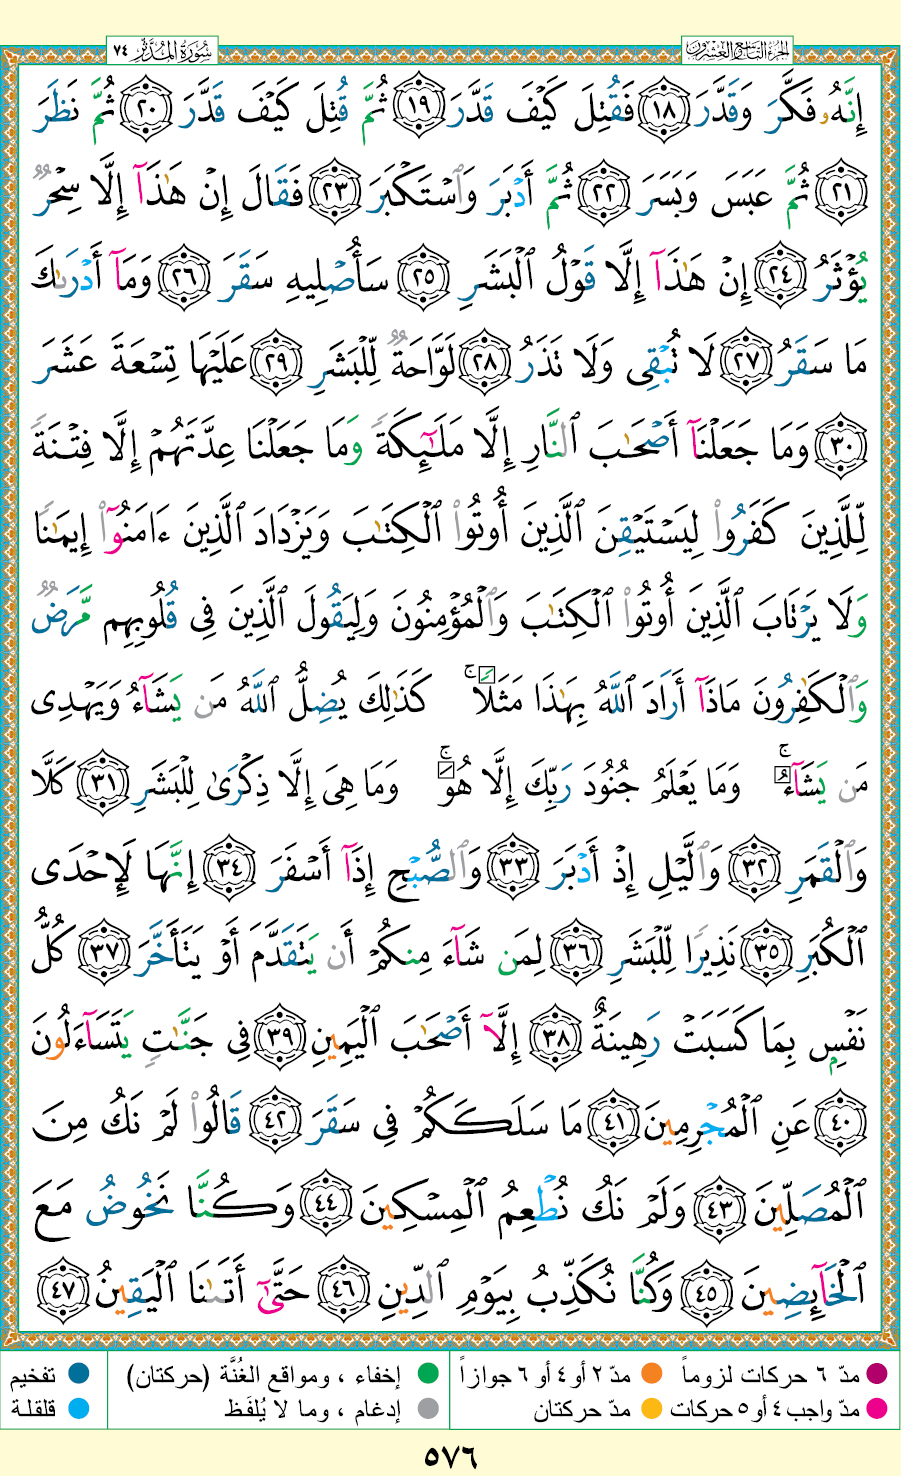 الجزء التاسع والعشرون
سُورَةُ المُدَّثِّر ٧٤
إِنَّهُۥ فَكَّرَ وَقَدَّرَ ١٨ فَقُتِلَ كَيۡفَ قَدَّرَ ١٩ ثُمَّ قُتِلَ كَيۡفَ قَدَّرَ ٢٠ ثُمَّ نَظَرَ
٢١ ثُمَّ عَبَسَ وَبَسَرَ ٢٢ ثُمَّ أَدۡبَرَ وَٱسۡتَكۡبَرَ ٢٣ فَقَالَ إِنۡ هَٰذَآ إِلَّا سِحۡرٞ
يُؤۡثَرُ ٢٤ إِنۡ هَٰذَآ إِلَّا قَوۡلُ ٱلۡبَشَرِ ٢٥ سَأُصۡلِيهِ سَقَرَ ٢٦ وَمَآ أَدۡرَىٰكَ
مَا سَقَرُ ٢٧ لَا تُبۡقِي وَلَا تَذَرُ ٢٨ لَوَّاحَةٞ لِّلۡبَشَرِ ٢٩ عَلَيۡهَا تِسۡعَةَ عَشَرَ
٣٠ وَمَا جَعَلۡنَآ أَصۡحَٰبَ ٱلنَّارِ إِلَّا مَلَٰٓئِكَةٗ وَمَا جَعَلۡنَا عِدَّتَهُمۡ إِلَّا فِتۡنَةٗ
لِّلَّذِينَ كَفَرُواْ لِيَسۡتَيۡقِنَ ٱلَّذِينَ أُوتُواْ ٱلۡكِتَٰبَ وَيَزۡدَادَ ٱلَّذِينَ ءَامَنُوٓاْ إِيمَٰنٗا
وَلَا يَرۡتَابَ ٱلَّذِينَ أُوتُواْ ٱلۡكِتَٰبَ وَٱلۡمُؤۡمِنُونَ وَلِيَقُولَ ٱلَّذِينَ فِي قُلُوبِهِم مَّرَضٞ
وَٱلۡكَٰفِرُونَ مَاذَآ أَرَادَ ٱللَّهُ بِهَٰذَا مَثَلٗاۚ كَذَٰلِكَ يُضِلُّ ٱللَّهُ مَن يَشَآءُ وَيَهۡدِي
مَن يَشَآءُۚ وَمَا يَعۡلَمُ جُنُودَ رَبِّكَ إِلَّا هُوَۚ وَمَا هِيَ إِلَّا ذِكۡرَىٰ لِلۡبَشَرِ ٣١ كَلَّا
وَٱلۡقَمَرِ ٣٢ وَٱلَّيۡلِ إِذۡ أَدۡبَرَ ٣٣ وَٱلصُّبۡحِ إِذَآ أَسۡفَرَ ٣٤ إِنَّهَا لَإِحۡدَى
ٱلۡكُبَرِ ٣٥ نَذِيرٗا لِّلۡبَشَرِ ٣٦ لِمَن شَآءَ مِنكُمۡ أَن يَتَقَدَّمَ أَوۡ يَتَأَخَّرَ ٣٧ كُلُّ
نَفۡسِۭ بِمَا كَسَبَتۡ رَهِينَةٌ ٣٨ إِلَّآ أَصۡحَٰبَ ٱلۡيَمِينِ ٣٩ فِي جَنَّٰتٖ يَتَسَآءَلُونَ
٤٠ عَنِ ٱلۡمُجۡرِمِينَ ٤١ مَا سَلَكَكُمۡ فِي سَقَرَ ٤٢ قَالُواْ لَمۡ نَكُ مِنَ
ٱلۡمُصَلِّينَ ٤٣ وَلَمۡ نَكُ نُطۡعِمُ ٱلۡمِسۡكِينَ ٤٤ وَكُنَّا نَخُوضُ مَعَ
ٱلۡخَآئِضِينَ ٤٥ وَكُنَّا نُكَذِّبُ بِيَوۡمِ ٱلدِّينِ ٤٦ حَتَّىٰٓ أَتَىٰنَا ٱلۡيَقِينُ ٤٧
مدّ ٦ حركات لزوماً مدّ ٢ أو ٤ أو ٦ جوازاً إخفاء ، ومواقع الغُنَّة (حركتان) تفخيم
مدّ واجب ٤ أو ٥ حركات مدّ حركتان إدغام ، وما لا يُلفَظ قلقلة
٥٧٦